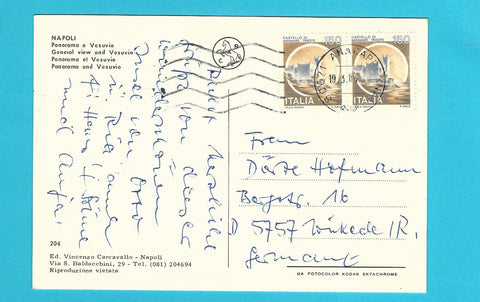 NAPOLI
Panorama e Vesuvio
General view and Vesuvio
Panorama et Vesuve
Panorama und Vesuv
CASTELLO DI MIRAMARE - TRIESTE
150
ITALIA
CASTELLO DI MIRAMARE - TRIESTE
150
ITALIA
ANACAPRI
19.3.8
herzliche
Grüße von dieser
wunderschönen
Insel von
Frau
Dörte Hofmann
Bergstr. 16
D 5757 Wickede / R.
Germany
204
Ed. Vincenzo Carcavallo - Napoli
Via S. Baldacchini, 29 - Tel. (081) 204694
Riproduzione vietata
DA FOTOCOLOR KODAK EKTACHROME